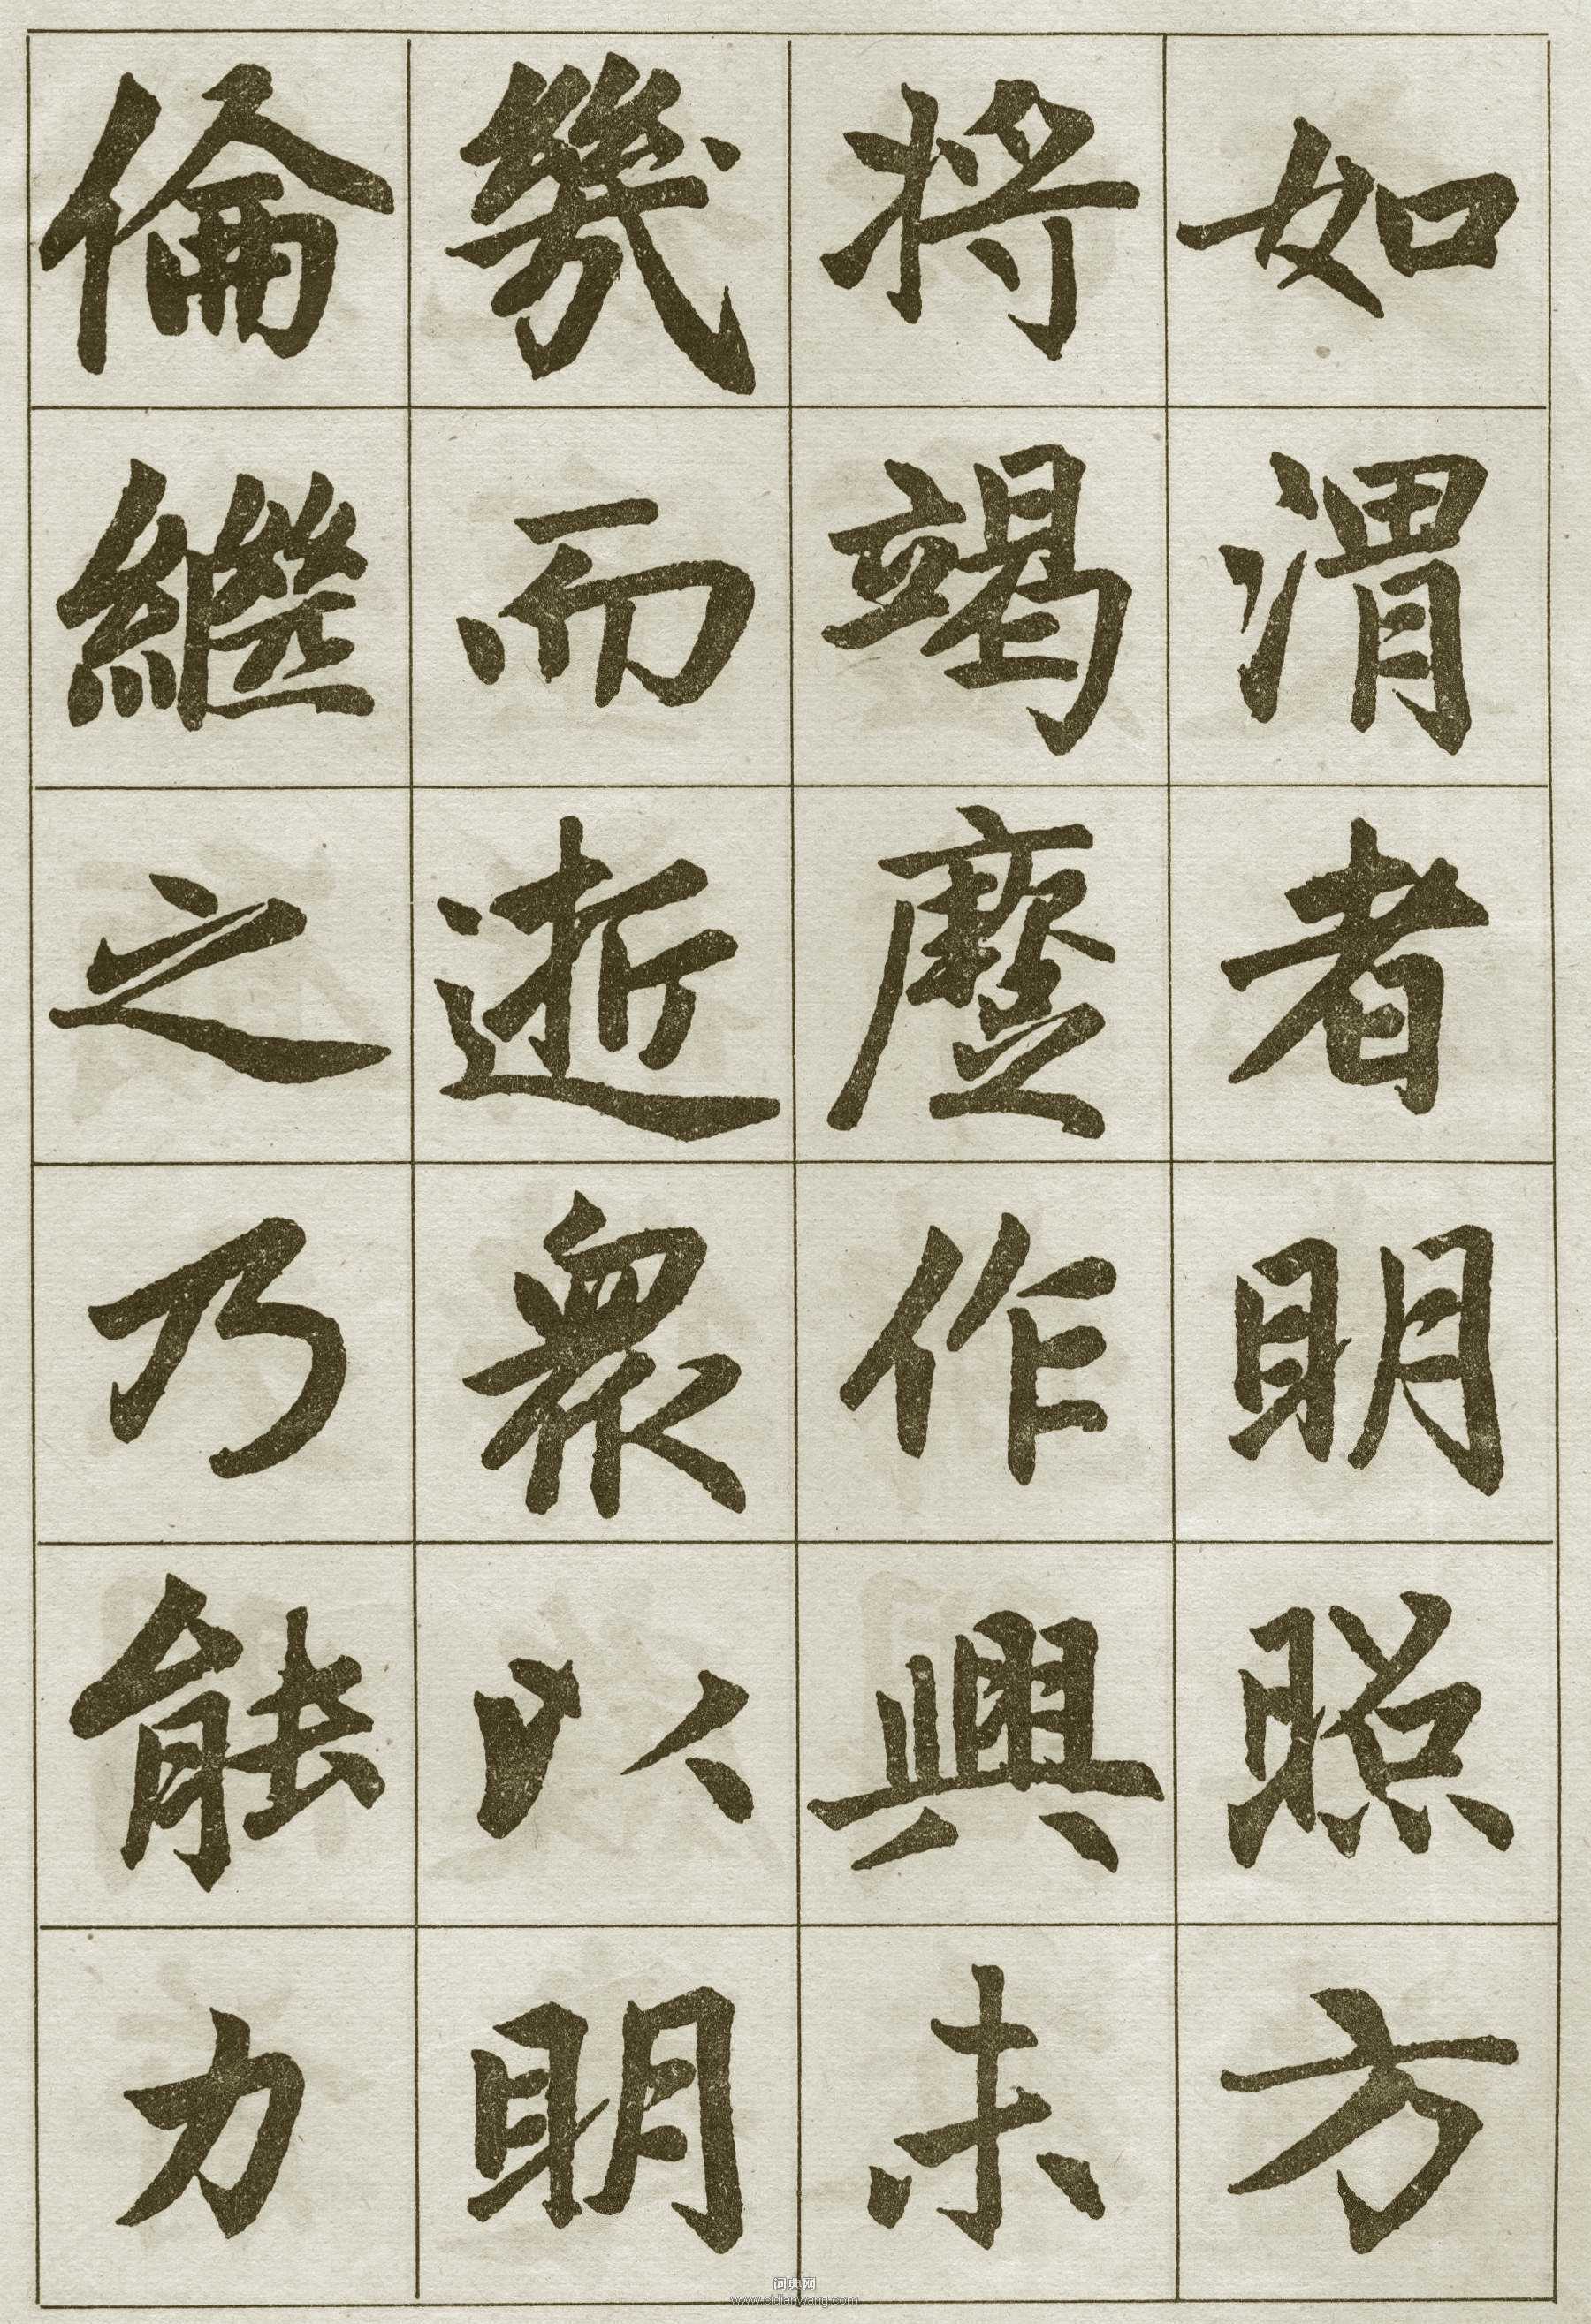 如渭者明照方
將竭作興未
幾而逝衆以明
倫繼之乃能力
词典网
www.cidianwang.com